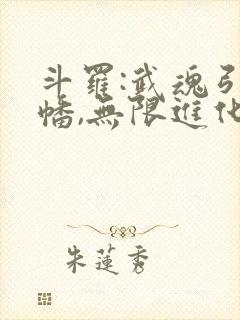 斗羅:武魂引
幡,無限進化
朱蓮秀